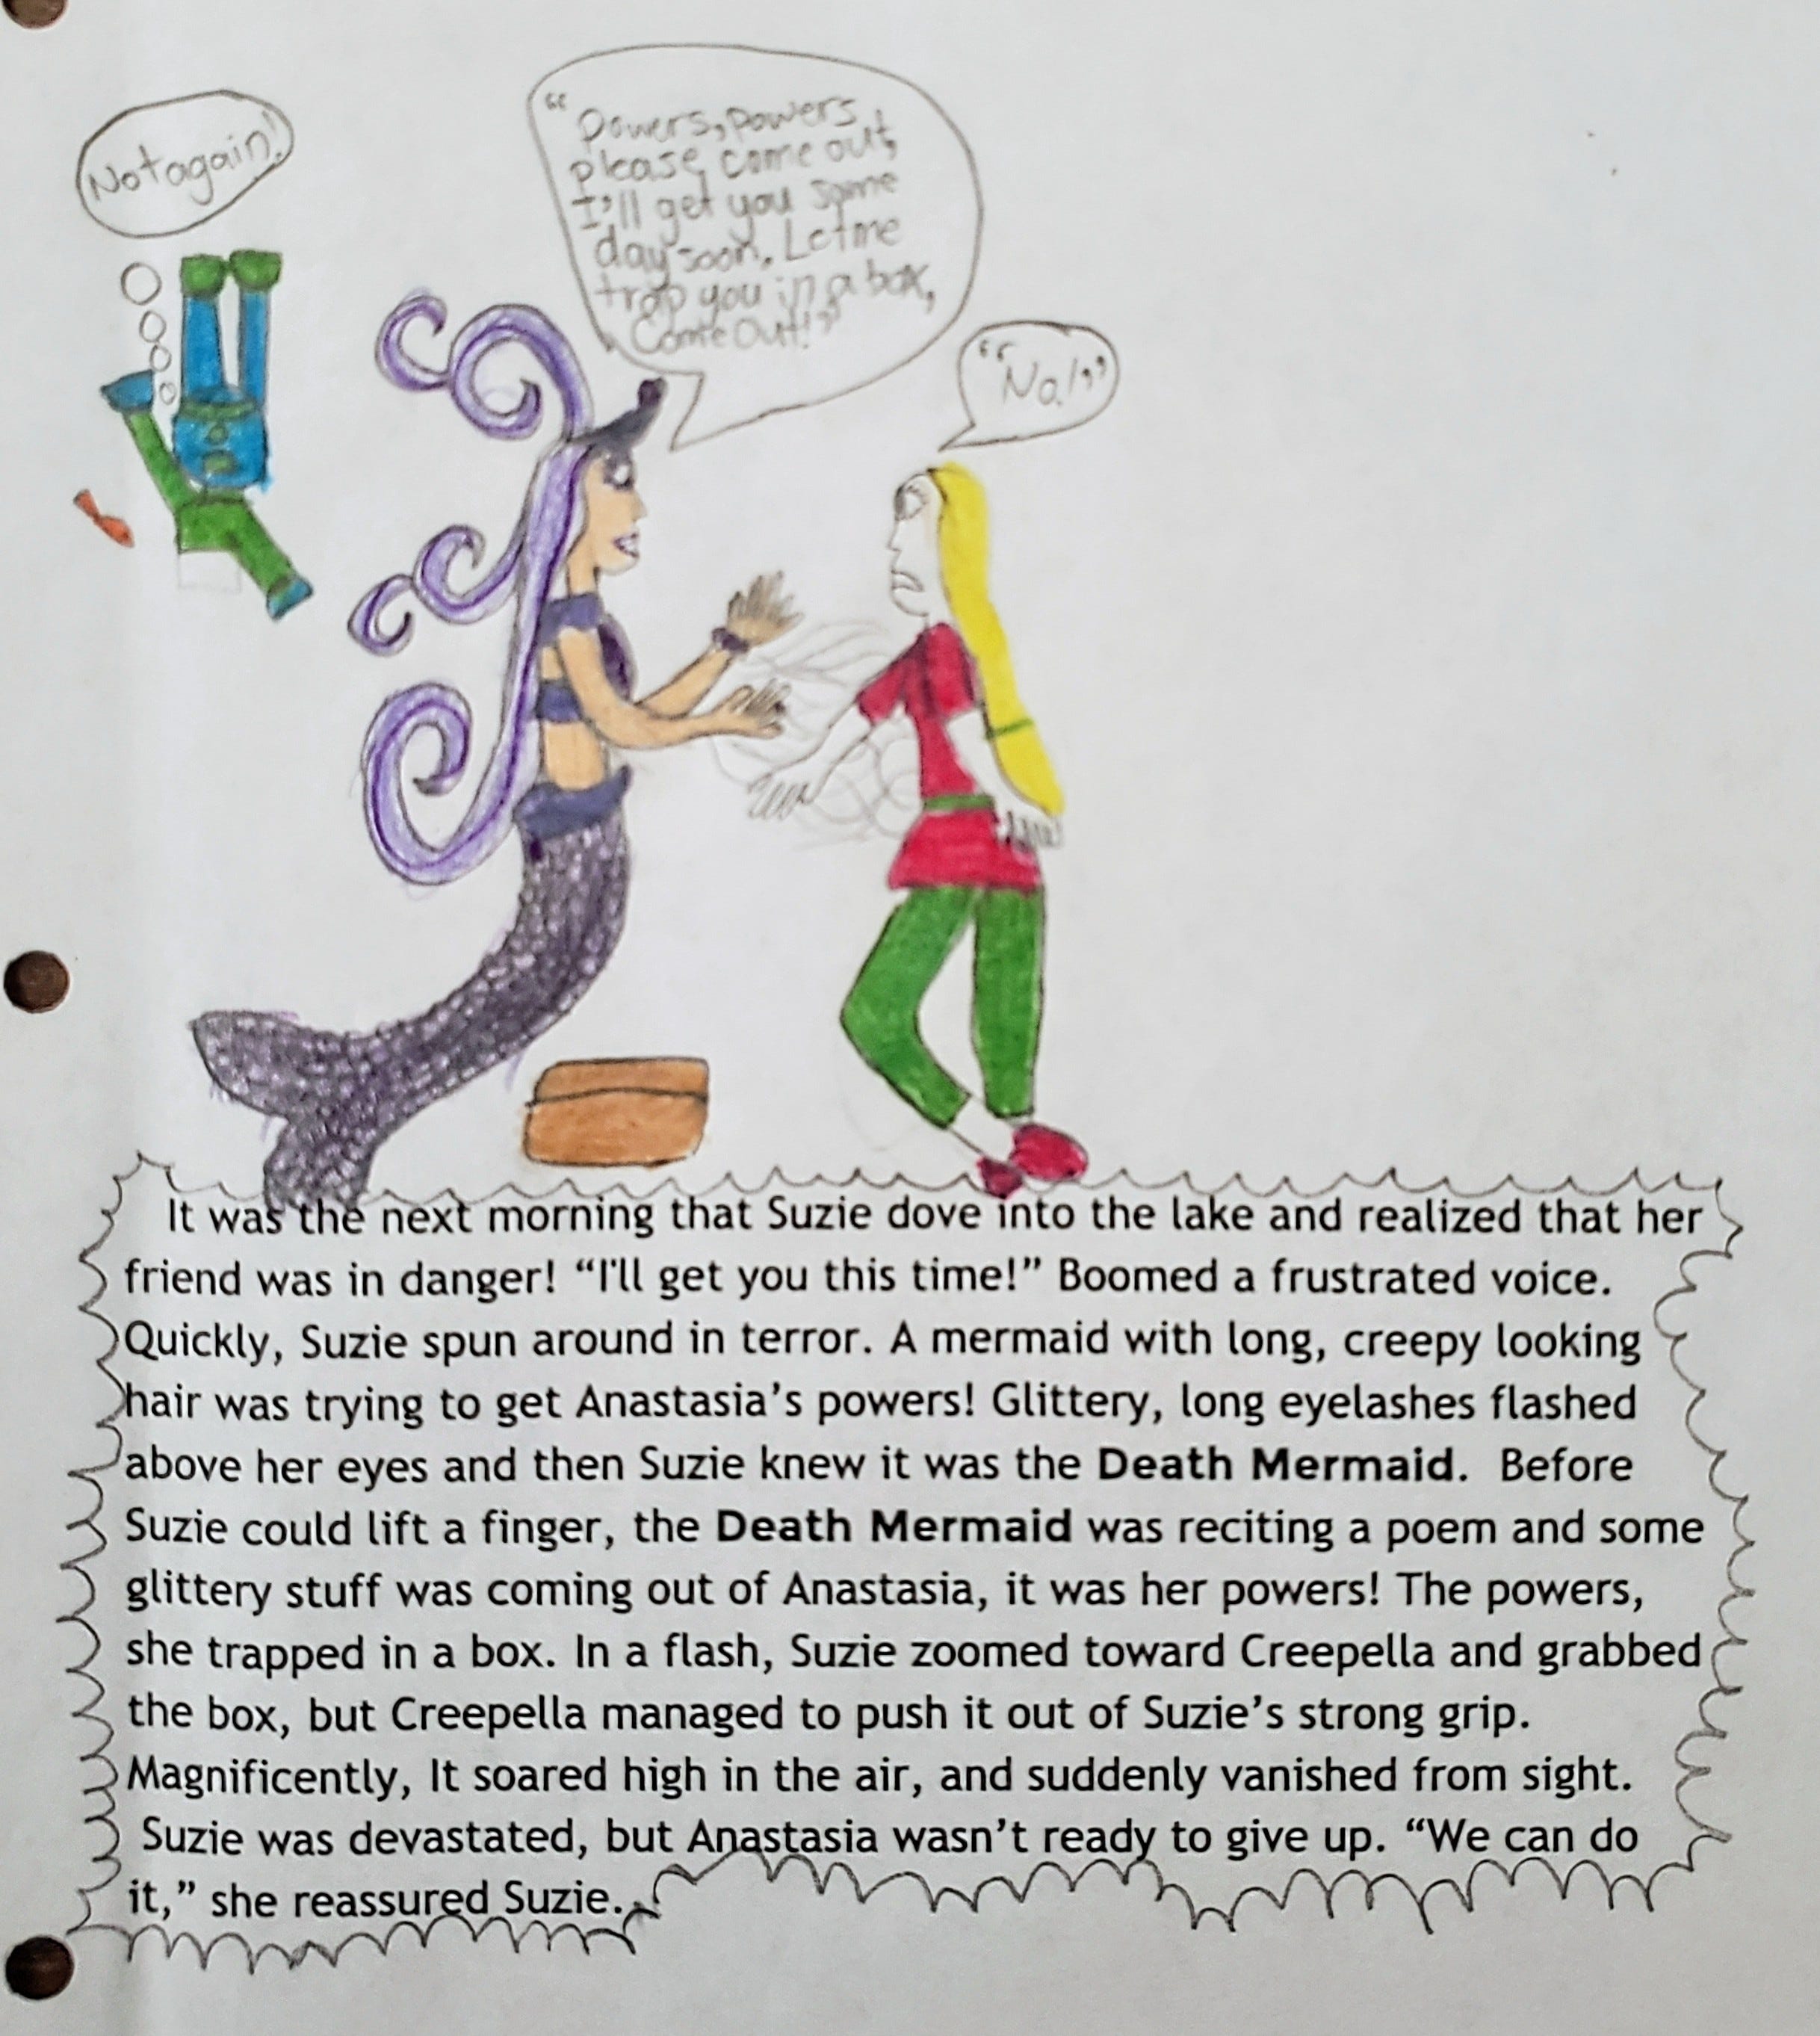 Not again!
“Powers, powers
please come out,
I'll get you some
day soon. Let me
trap you in a box,
Come Out!”
“No!”
It was the next morning that Suzie dove into the lake and realized that her
friend was in danger! “I'll get you this time!” Boomed a frustrated voice.
Quickly, Suzie spun around in terror. A mermaid with long, creepy looking
hair was trying to get Anastasia’s powers! Glittery, long eyelashes flashed
above her eyes and then Suzie knew it was the Death Mermaid.  Before
Suzie could lift a finger, the Death Mermaid was reciting a poem and some
glittery stuff was coming out of Anastasia, it was her powers! The powers,
she trapped in a box. In a flash, Suzie zoomed toward Creepella and grabbed
the box, but Creepella managed to push it out of Suzie’s strong grip.
Magnificently, It soared high in the air, and suddenly vanished from sight.
Suzie was devastated, but Anastasia wasn’t ready to give up. “We can do
it,” she reassured Suzie.